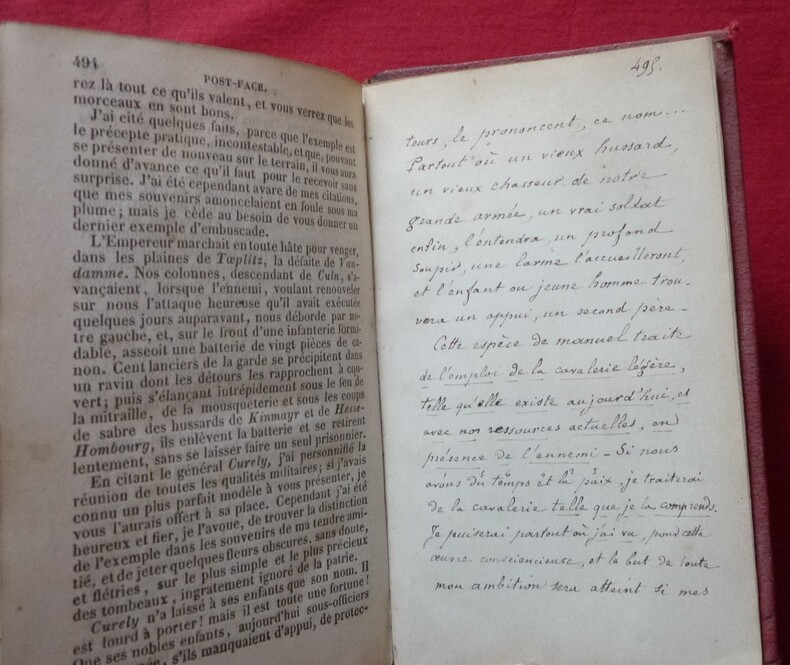 494
POST-FACE.
rez là tout ce qu'ils valent, et vous verrez que les
morceaux en sont bons.
J'ai cité quelques faits, parce que l'exemple est
le précepte pratique, incontestable, et que, pouvant
se présenter de nouveau sur le terrain, il vous aura
donné d'avance ce qu'il faut pour le recevoir sans
surprise. J'ai été cependant avare de mes citations,
que mes souvenirs amoncelaient en foule sous ma
plume; mais je cède au besoin de vous donner un
dernier exemple d'embuscade.
L'Empereur marchait en toute hâte pour venger,
dans les plaines de Tœplitz, la défaite de Van-
damme. Nos colonnes, descendant de Culm, s'a-
vançaient, lorsque l'ennemi, voulant renouveler
sur nous l'attaque heureuse qu'il avait exécutée
quelques jours auparavant, nous déborde par no-
tre gauche, et, sur le front d'une infanterie formi-
dable, asseoit une batterie de vingt pièces de ca-
non. Cent lanciers de la garde se précipitent dans
un ravin dont les détours les rapprochent à cou-
vert; puis s'élançant intrépidement sous le feu de
la mitraille, de la mousqueterie et sous les coups
de sabre des hussards de Kinmayr et de Hesse-
Hombourg, ils enlèvent la batterie et se retirent
lentement, sans se laisser faire un seul prisonnier.
En citant le général Curely, j'ai personnifié la
réunion de toutes les qualités militaires; si j'avais
connu un plus parfait modèle à vous présenter, je
vous l'aurais offert à sa place. Cependant j'ai été
heureux et fier, je l'avoue, de trouver la distinction
de l'exemple dans les souvenirs de ma tendre ami-
tié, et de jeter quelques fleurs obscures, sans doute,
et flétries, sur le plus simple et le plus précieux
des tombeaux, ingratement ignoré de la patrie.
Curely n'a laissé à ses enfants que son nom. Il
est lourd à porter! mais il est toute une fortune!
Que ses nobles enfants, aujourd'hui sous-officiers
s'ils manquaient d'appui, de protec-
495.
teurs, le prononcent, ce nom...
Partout où un vieux hussard,
un vieux chasseur de notre
grande armée, un vrai soldat
enfin, l'entendra, un profond
soupir, une larme l'accueilleront,
et l'enfant ou jeune homme trou-
vera un appui, un second père -
Cette espèce de manuel traite
de l'emploi de la cavalerie légère,
telle qu'elle existe aujourd'hui, et
avec nos ressources actuelles, en
présence de l'ennemi - Si nous
avons du temps et la paix, je traiterai
de la cavalerie telle que je la comprends.
Je puiserai partout où j'ai vu, pour cette
œuvre consciencieuse, et le but de toute
mon ambition sera atteint si mes